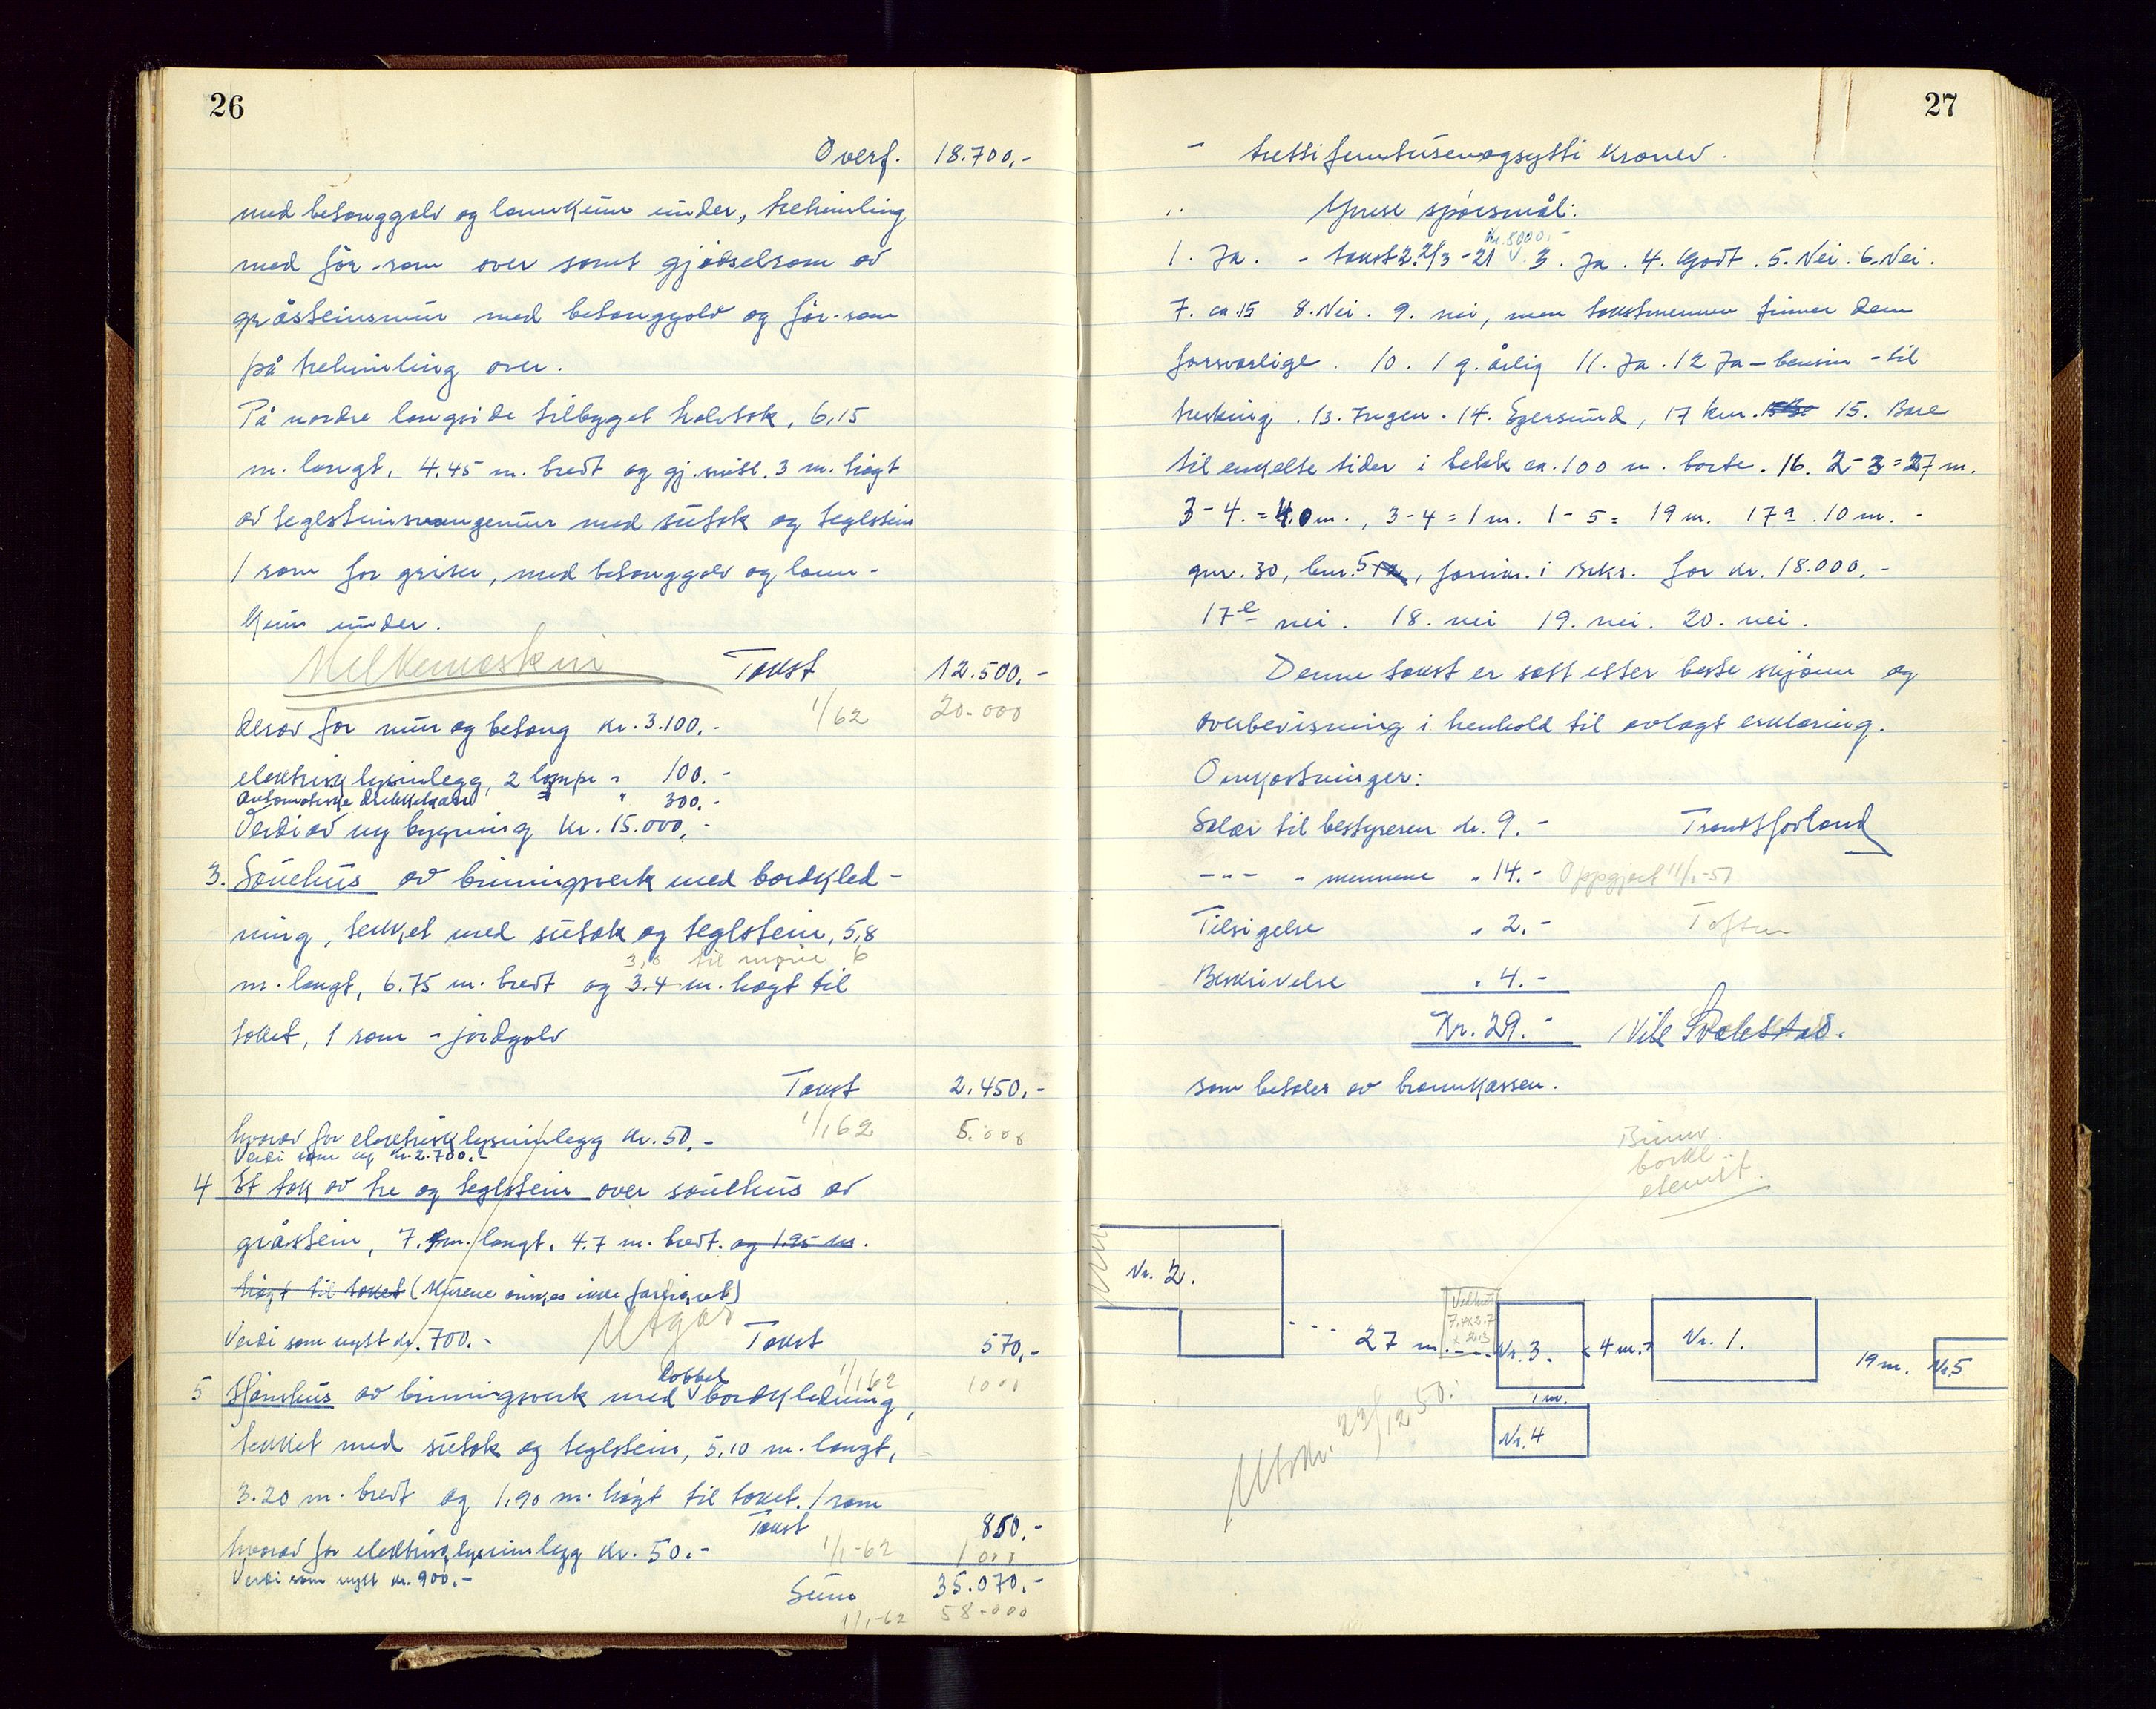 26
Overf. 18.700,-
med betonggolv og landkum under, trehimling
med fôr-rom over samt gjødselrom av
gråsteinsmur med betonggolv og fôr-rom
på trehimling over.
På nordre langside tilbygget halvtak, 6,15
m. langt, 4.45 m. bredt og gj.snitl. 3 m. høgt
av teglsteinsvangemur med sutak og teglstein
1 rom for griser, med betonggolv og land-
kum under.
Melkemaskin Takst 12.500,-
1/62 20.000
derav for mur og betong kr. 3.100,-
elektrisk lysinlegg, 2 lampe " 100.-
Automatiske drikkekar " 300.-
Verdi av ny bygning kr. 15.000,-
3. Sauehus av binningsverk med bordkled-
ning, tekket med sutak og teglstein, 5,8
3,6 til møne 6
m. langt, 6.75 m. bredt og 3.4 m. høgt til
taket, 1 rom - jordgolv
Takst 2.450.-
1/1 62 5.000
hvorav for elektrisk lysinnlegg kr. 50.-
Verdi som ny kr. 2.700.-
4 Et tak av tre og teglstein over sauehus av
gråstein, 7.4m. langt, 4.7 m. bredt. og 1.95 m.
høgt til taket (Murene ønskes ikke forsikret)
Verdi som nytt kr. 700.- Utgår Takst 570,-
1/1 62 1000
dobbel
5 Hønehus av binningsverk med bordkledning,
tekket med sutak og teglstein, 5,10 m. langt,
3.20 m. bredt og 1,90 m. høgt til taket. 1 rom
Takst 850.-
hvorav for elektrisk lysinnlegg kr. 50.- 1/1-62 1000
Verdi som nytt kr. 900.-
Sum 35.070.-
1/1-62 58.000
27
- trettifemtusenogsytti kroner.
Ymse spørsmål:
kr. 8000.-
1. Ja. - takst 2. 2/3-21 3. Ja. 4. Godt. 5. Nei. 6. Nei.
7. ca. 15 8. Nei. 9. nei, men takstmennene finner dem
forsvarlige. 10. 1 g. årlig 11. Ja. 12 Ja - bensin - til
tresking. 13. Ingen. 14. Egersund, 17 km. 15. Bare
til enkelte tider i bekk ca. 100 m. borte. 16. 2-3=27 m.
3-4.=4,0m., 3-4=1m. 1-5= 19 m. 17a. 10 m. -
gnr. 30, bnr. 5, forsikr. i Brks. for kr. 18.000.-
17e nei. 18. nei 19. nei. 20. nei.
Denne takst er satt etter beste skjønn og
overbevisning i henhold til avlagt erklæring.
Omkostninger:
Salær til bestyreren kr. 9.- Trond Hovland
-"- " mennene " 14.- Oppgjort 11/1-51
Tilsigelse " 2.- Toften
Beskrivelse " 4.-
Kr. 29.- Nils Svalestad.
som betales av brannkassen.
Binnv.
bordkl.
Nr. 2.
27 m.
Vedhus
7.4x2.7
Nr. 3.
4 m.
Nr. 1.
19 m.
Nr. 5
1 m.
Nr. 4
Utskr. 23/12 50.